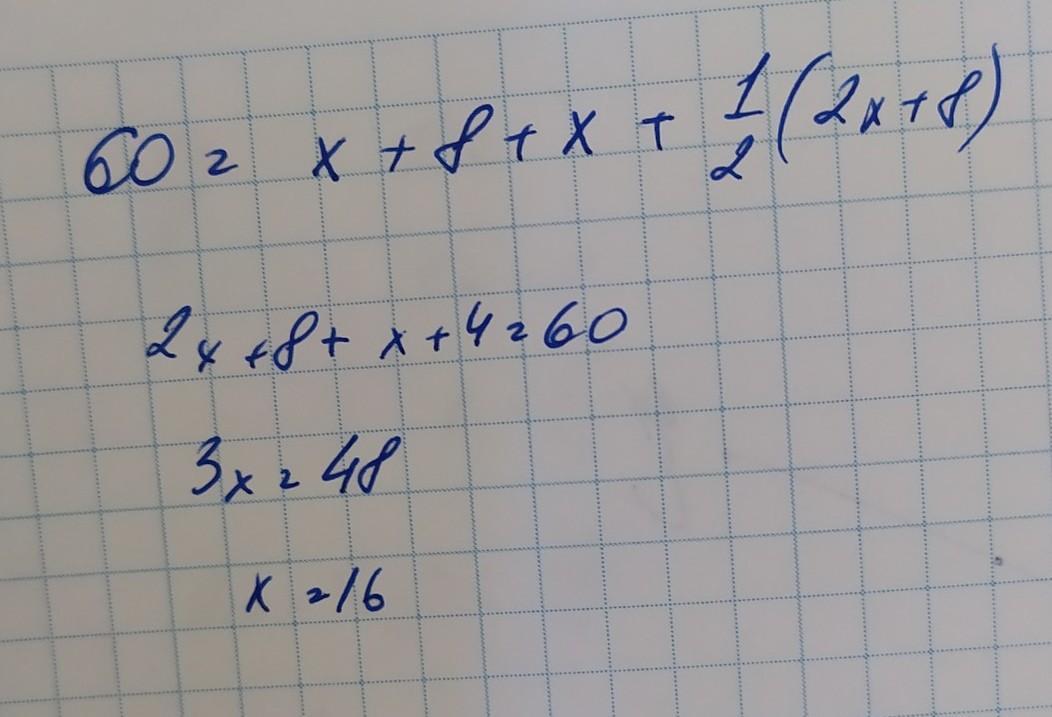 60 = x + 8 + x + 1/2 (2x + 8)
2x + 8 + x + 4 = 60
3x = 48
x = 16